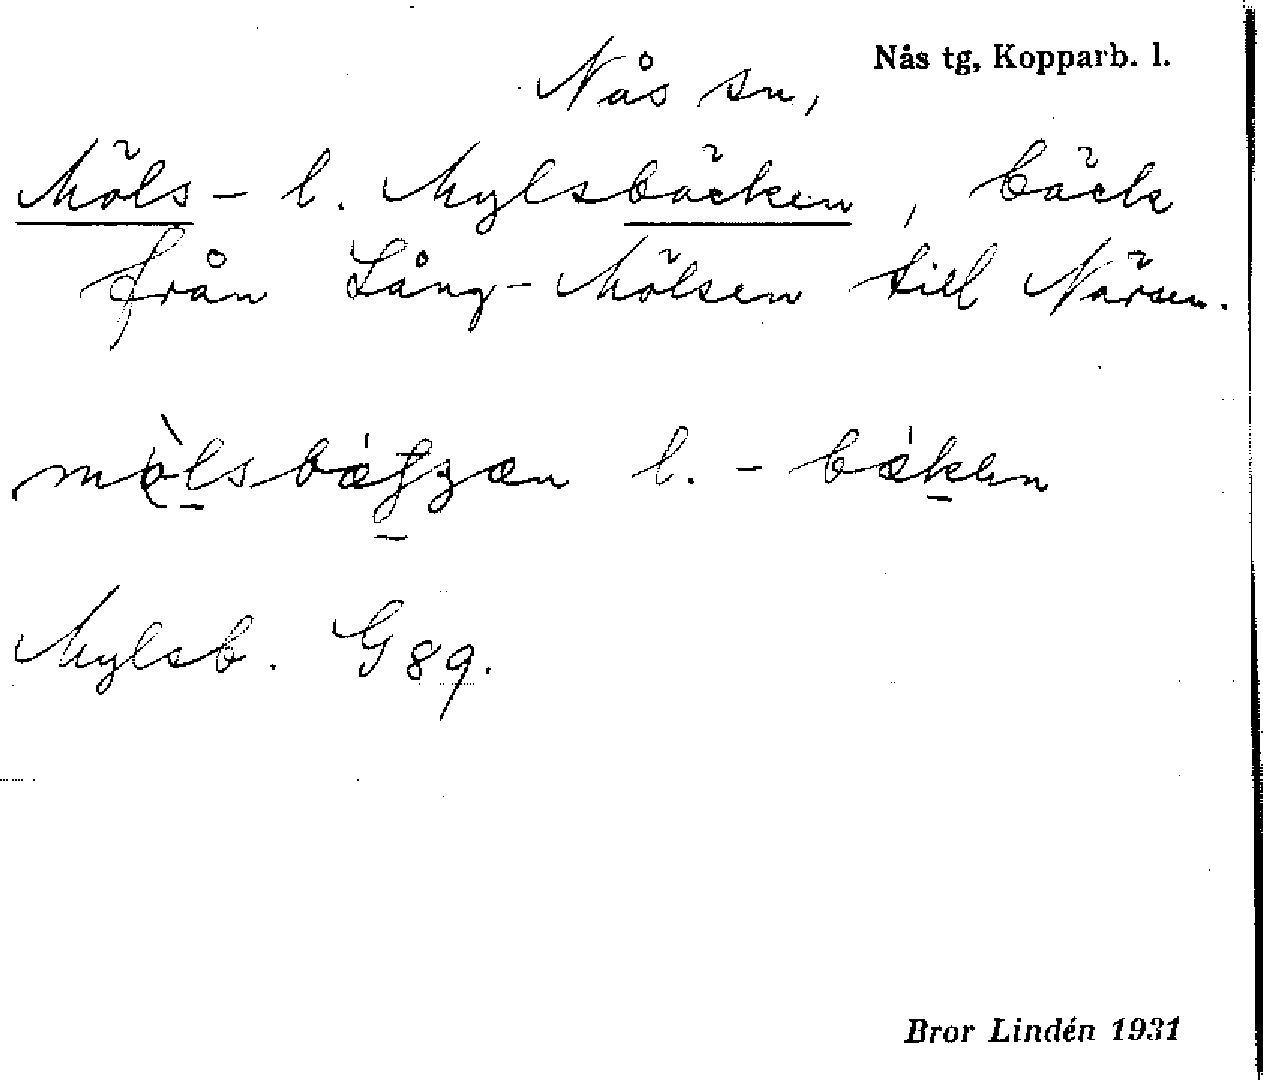 Nås tg, Kopparb. l.
Nås sn,
Möls- l. Mylsbäcken, bäck
från Lång-Mölsen till Närsen.
l. -bæken
Mylsb. G 89.
Bror Lindén 1931